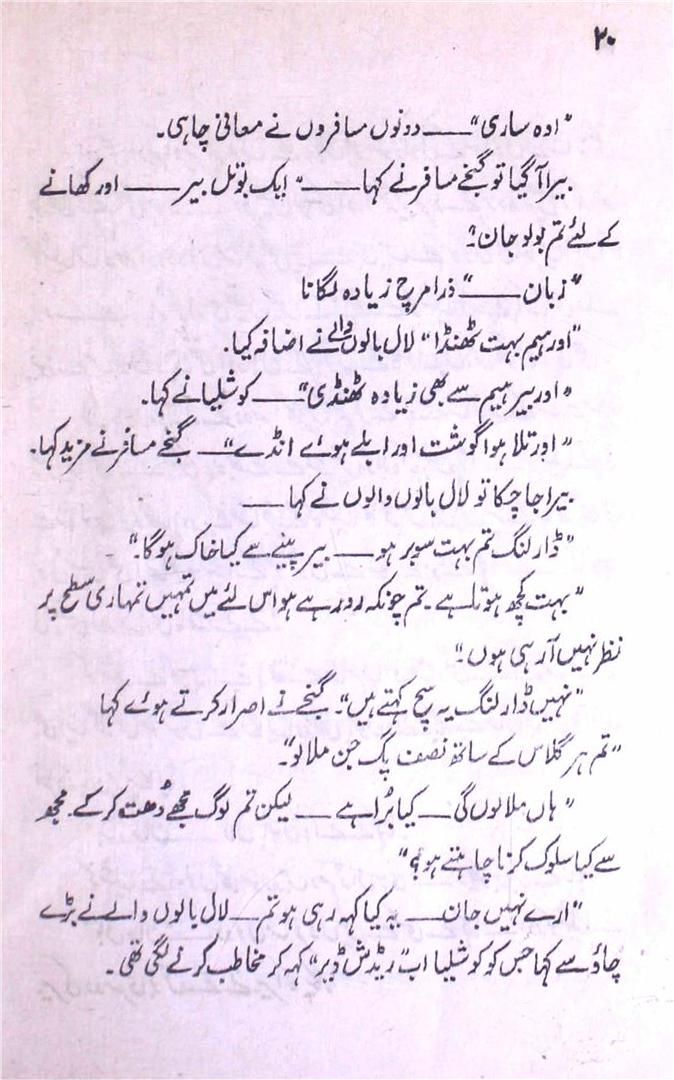 ۲۰
"اوہ ساری" —— دونوں مسافروں نے معافی چاہی۔
بیرا آگیا تو گنجے مسافر نے کہا —— "ایک بوتل بیر —— اور کھانے
کے لئے تم بولو جان۔"
"زبان —— "ذرا مرچ زیادہ لگانا
"اور ہیم بہت ٹھنڈا" لال بالوں والے نے اضافہ کیا۔
"اور بیر ہیم سے بھی زیادہ ٹھنڈی" —— کوشلیا نے کہا۔
"اور تلا ہوا گوشت اور ابلے ہوئے انڈے" —— گنجے مسافر نے مزید کہا۔
بیرا جا چکا تو لال بالوں والوں نے کہا ——
"ڈارلنگ تم بہت سوبر ہو —— بیر پینے سے کیا خاک ہوگا۔"
"بہت کچھ ہوتا ہے۔ تم چونکہ رو رہے ہو اس لئے میں تمہیں تمہاری سطح پر
نظر نہیں آ رہی ہوں۔"
"نہیں ڈارلنگ یہ سچ کہتے ہیں"۔ گنجے نے اصرار کرتے ہوئے کہا
"تم ہر گلاس کے ساتھ نصف پگ جن ملا لو"۔
"ہاں ملا لوں گی —— کیا بُرا ہے —— لیکن تم لوگ مجھے دُھت کر کے۔ مجھ
سے کیا سلوک کرنا چاہتے ہو؟"
"ارے نہیں جان —— یہ کیا کہہ رہی ہو تم —— لال بالوں والے نے بڑے
چاؤ سے کہا جس کو کوشلیا اب "ریڈش ڈیر" کہہ کر مخاطب کرنے لگی تھی۔